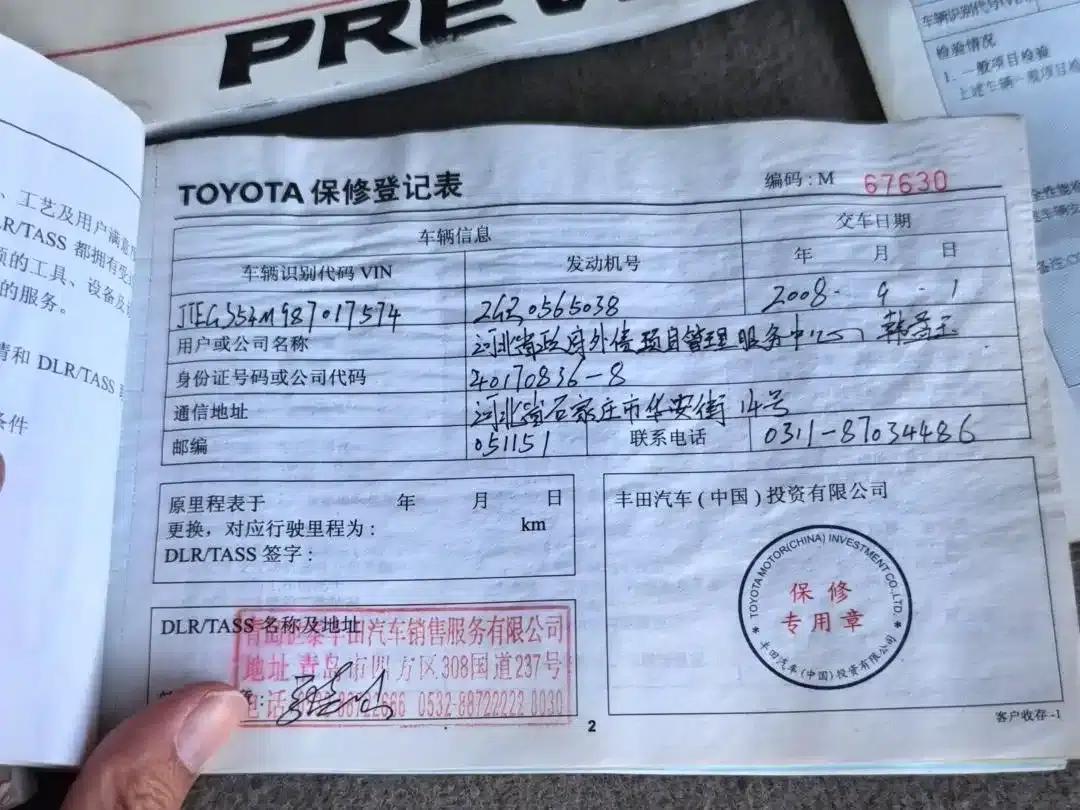 PREV
车辆识别代号
检验情况
1. 一般项目检验
上述车辆一般项目检
、工艺及用户满意
LR/TASS 都拥有受
的工具、设备及
的服务。
请和 DLR/TASS
条件
TOYOTA 保修登记表
编码: M 67630
车辆信息
交车日期
车辆识别代码 VIN
发动机号
年 月 日
JTEGS54M987017574
2GR0565038
2008. 9 . 1
用户或公司名称
河北省政府外债项目管理服务中心
身份证号码或公司代码
40170836-8
通信地址
河北省石家庄市华安街 14号
邮编
051151
联系电话
0311-87034486
原里程表于 年 月 日
更换，对应行驶里程为: km
DLR/TASS 签字:
丰田汽车(中国)投资有限公司
TOYOTA MOTOR(CHINA) INVESTMENT CO.,LTD.
保修
专用章
丰田汽车(中国)投资有限公司
DLR/TASS 名称及地址
丰田汽车销售服务有限公司
地址 青岛市四方区308国道237号
电话 0532-88722222 0030
2
客户收存 -1